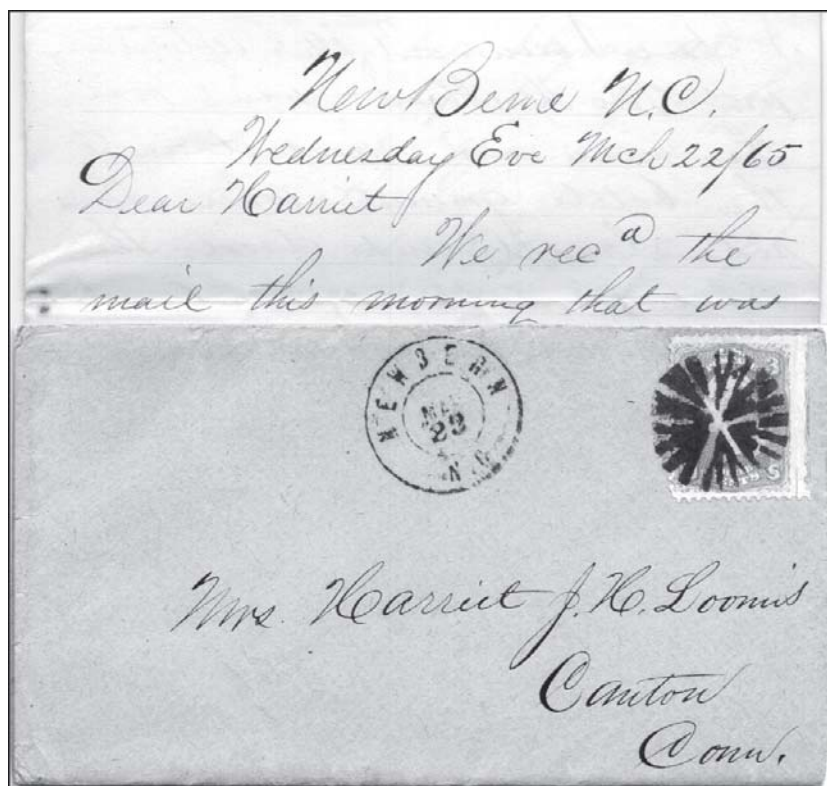 New Berne N.C.
Wednesday Eve Mch 22/65
Dear Harriet
We recd the
mail this morning that was
NEW BERN
MAR
23
N.C.
Mrs. Harriet J. H. Loomis
Canton
Conn.